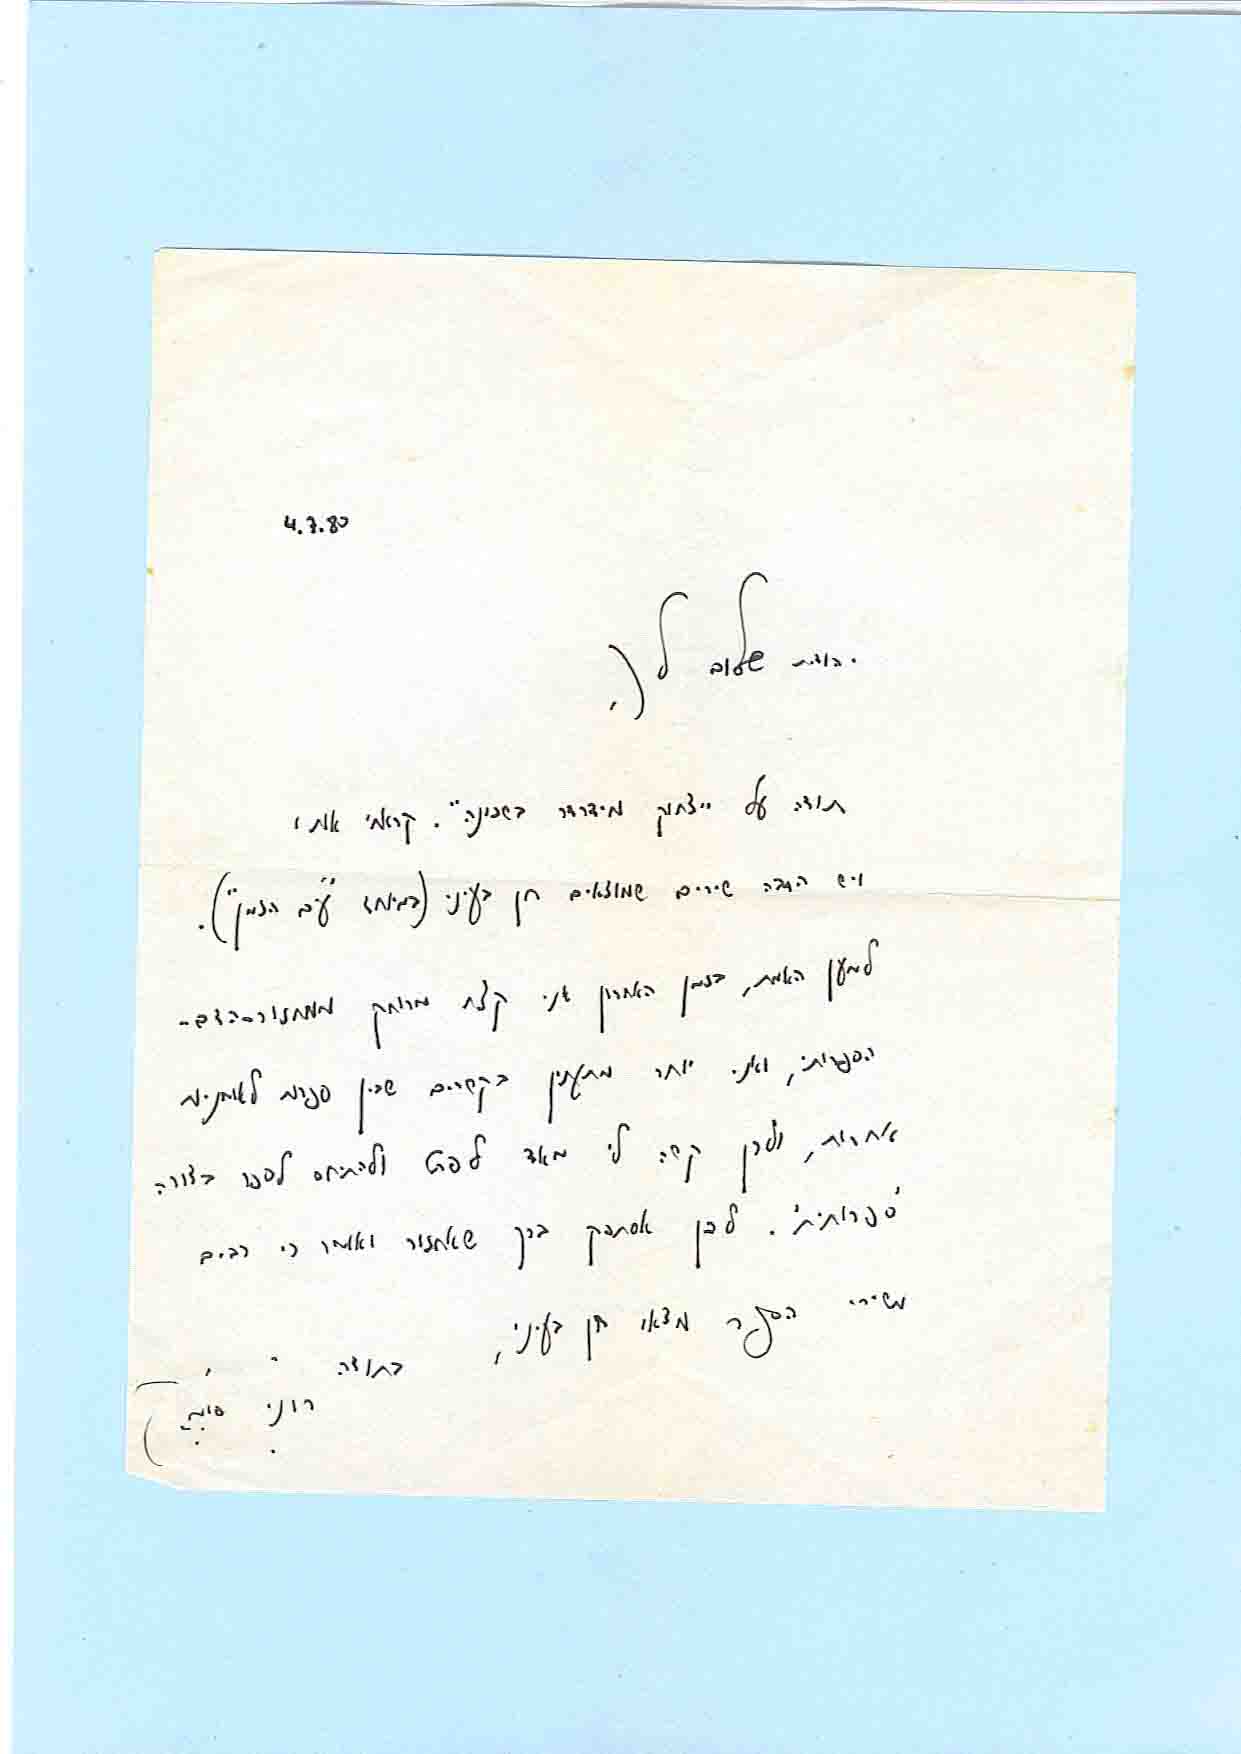 4.7.80
יהודית שלום לך,
תודה על "יצחק מידרדר בשכונה". קראתי אותו
ויש הרבה שירים שמוצאים חן בעיני (במיוחד "עם הזמן").
למען האמת, בזמן האחרון אני קצת מרוחק ממחזור-הדם-
הספרותי, ואני יותר מתעניין בקשרים שבין ספרות לאמנויות
אחרות, ולכן קשה לי מאד לפרט ולהתיחס לספר בצורה
'ספרותית'. לכן אסתפק בכך שאחזור ואומר כי רבים
משירי הספר מצאו חן בעיני,
בתודה
רוני סומק